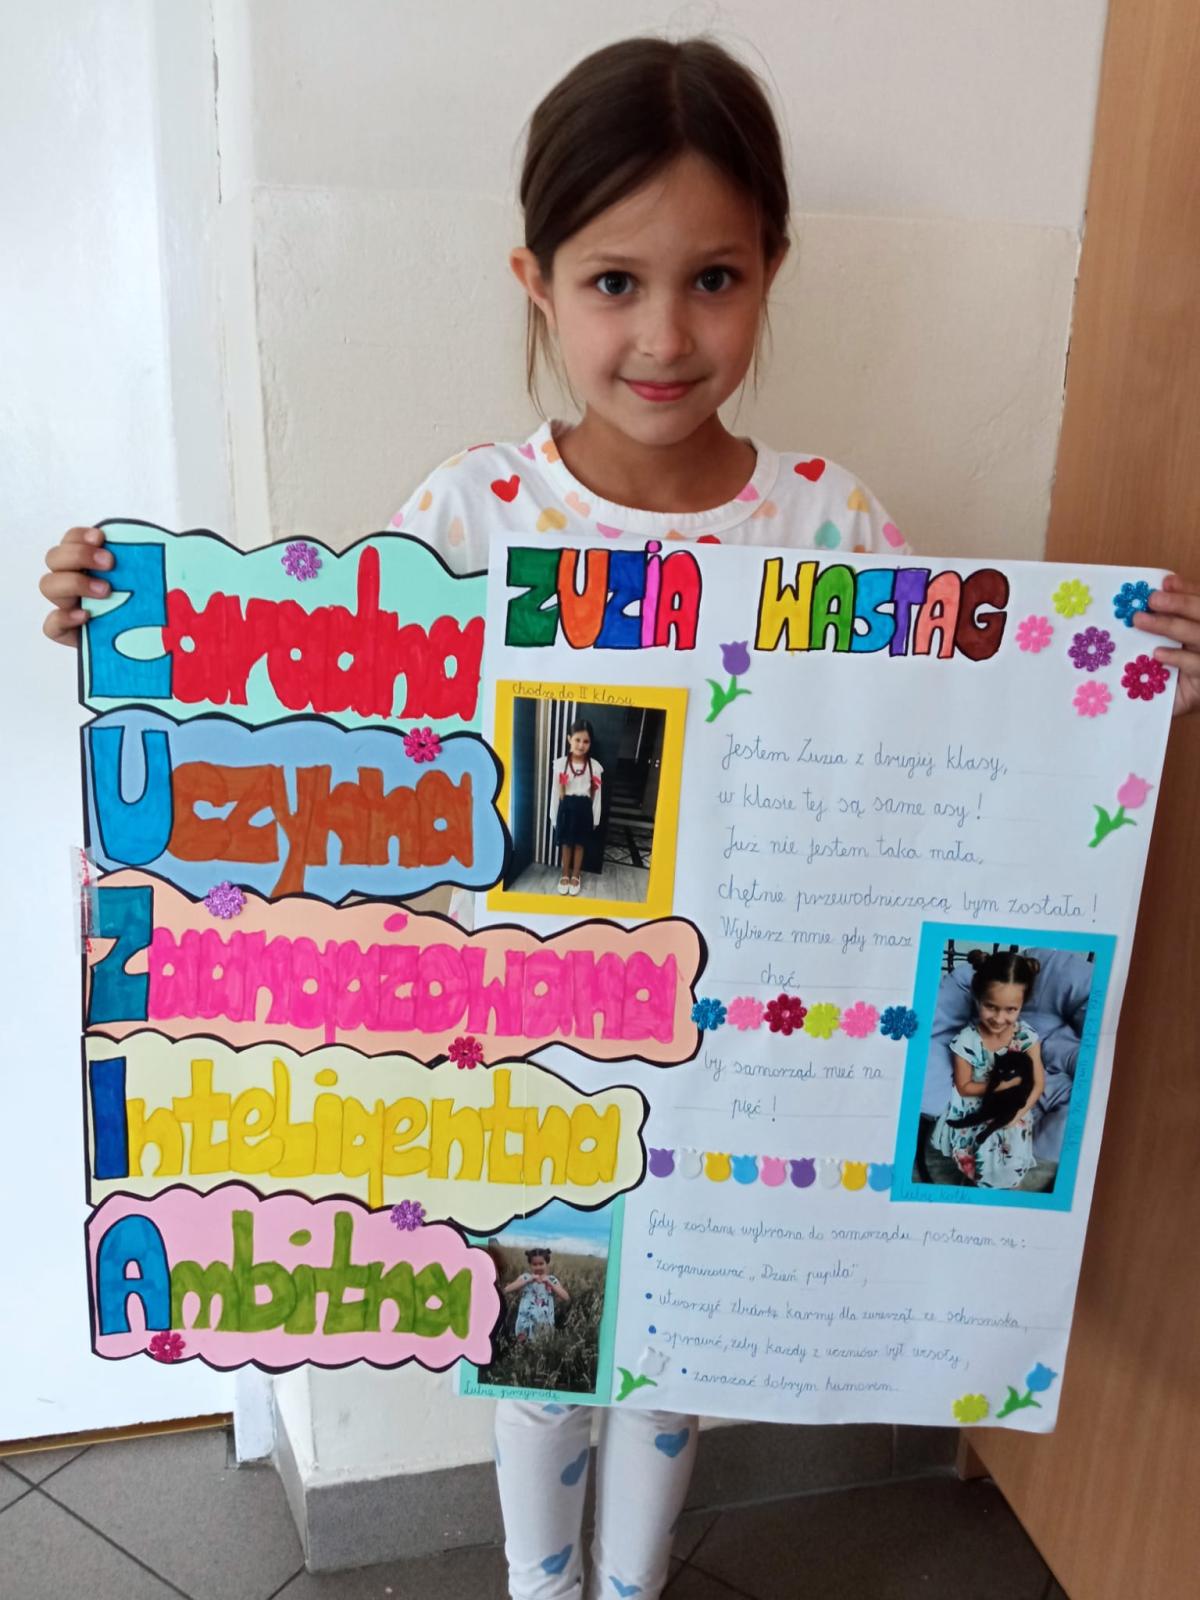 Zaradna
Uczynna
Zaangażowana
Inteligentna
Ambitna
ZUZiA WASTAG
chodzę do II klasy
Jestem Zuzia z drugiej klasy,
w klasie tej są same asy!
Już nie jestem taka mała,
chętnie przewodniczącą bym została!
Wybierz mnie gdy masz
chęć,
by samorząd mieć na
pięć!
Lubię kotki
Gdy zostanę wybrana do samorządu postaram się:
• zorganizować „Dzień pupila",
• utworzyć zbiórkę karmy dla zwierząt ze schroniska,
• sprawić, żeby każdy z uczniów był wesoły,
• zarażać dobrym humorem.
Lubię przyrodę